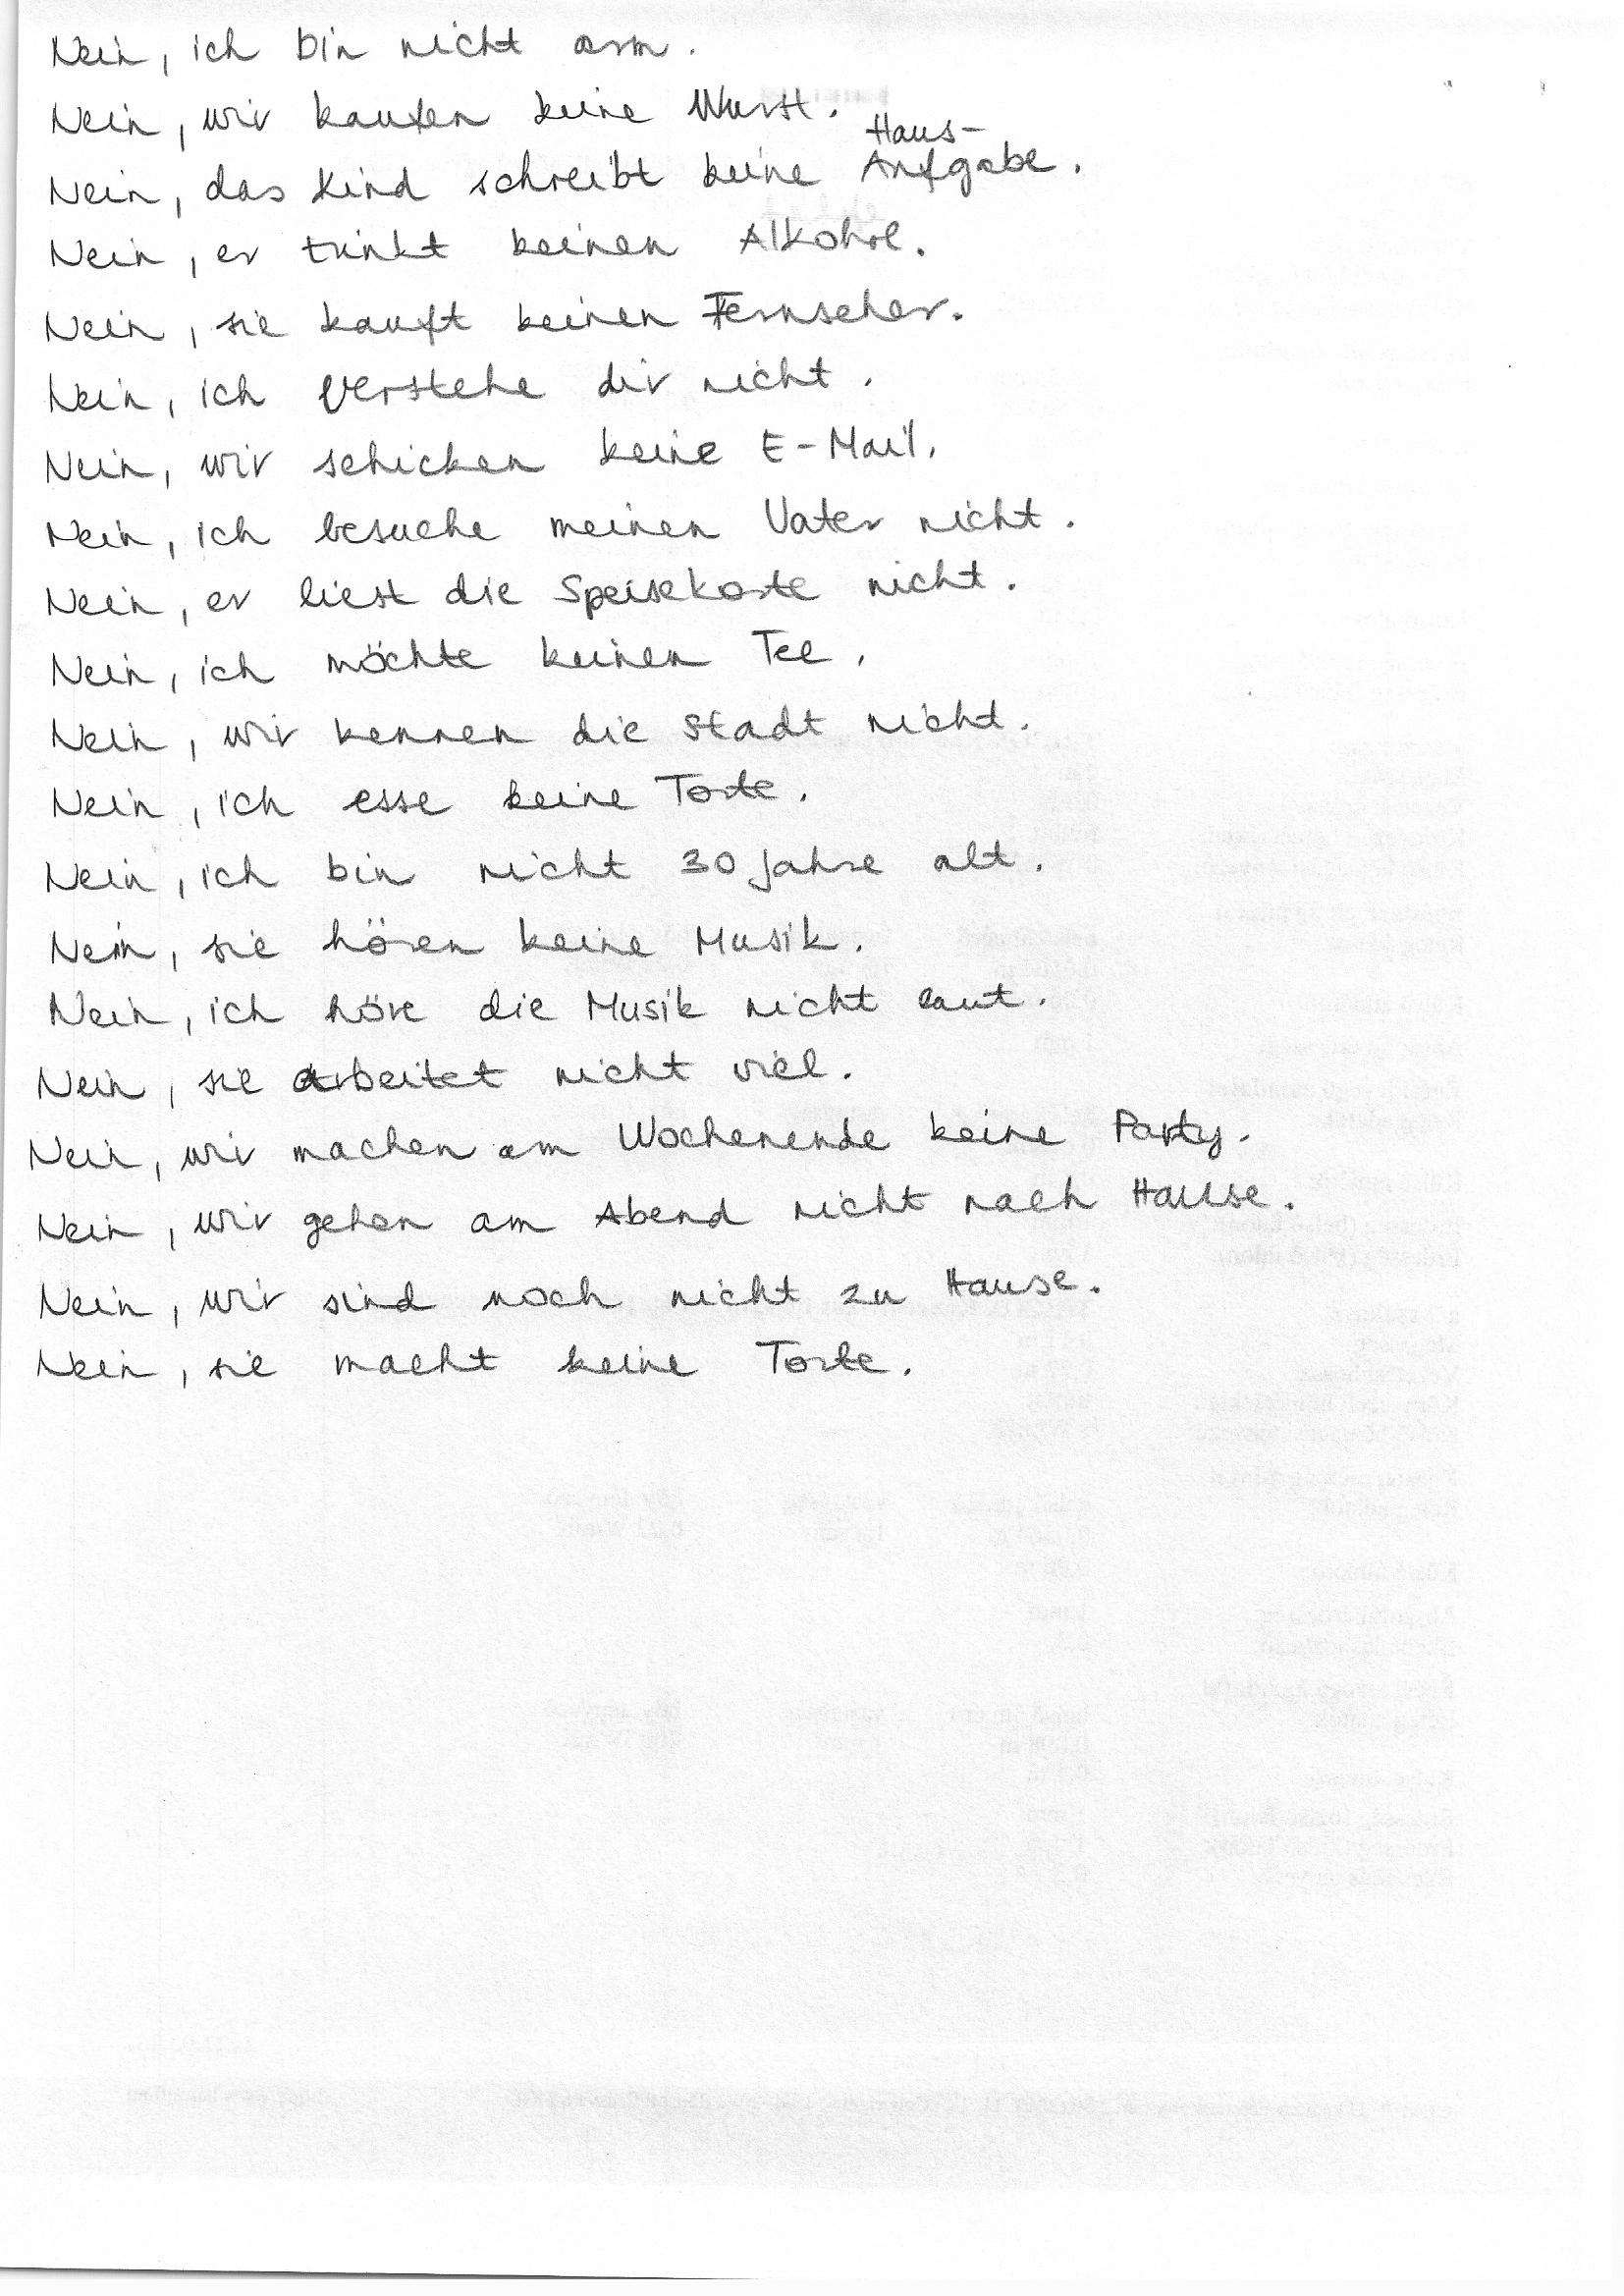 Nein, ich bin nicht arm.
Nein, wir kaufen keine Wurst.
Haus-
Nein, das Kind schreibt keine Aufgabe.
Nein, er trinkt keinen Alkohol.
Nein, sie kauft keinen Fernseher.
Nein, ich verstehe dir nicht.
Nein, wir schicken keine E-Mail.
Nein, ich besuche meinen Vater nicht.
Nein, er liest die Speisekarte nicht.
Nein, ich möchte keinen Tee.
Nein, wir kennen die Stadt nicht.
Nein, ich esse keine Torte.
Nein, ich bin nicht 30 Jahre alt.
Nein, sie hören keine Musik.
Nein, ich höre die Musik nicht laut.
Nein, sie arbeitet nicht viel.
Nein, wir machen am Wochenende keine Party.
Nein, wir gehen am Abend nicht nach Hause.
Nein, wir sind noch nicht zu Hause.
Nein, sie macht keine Torte.